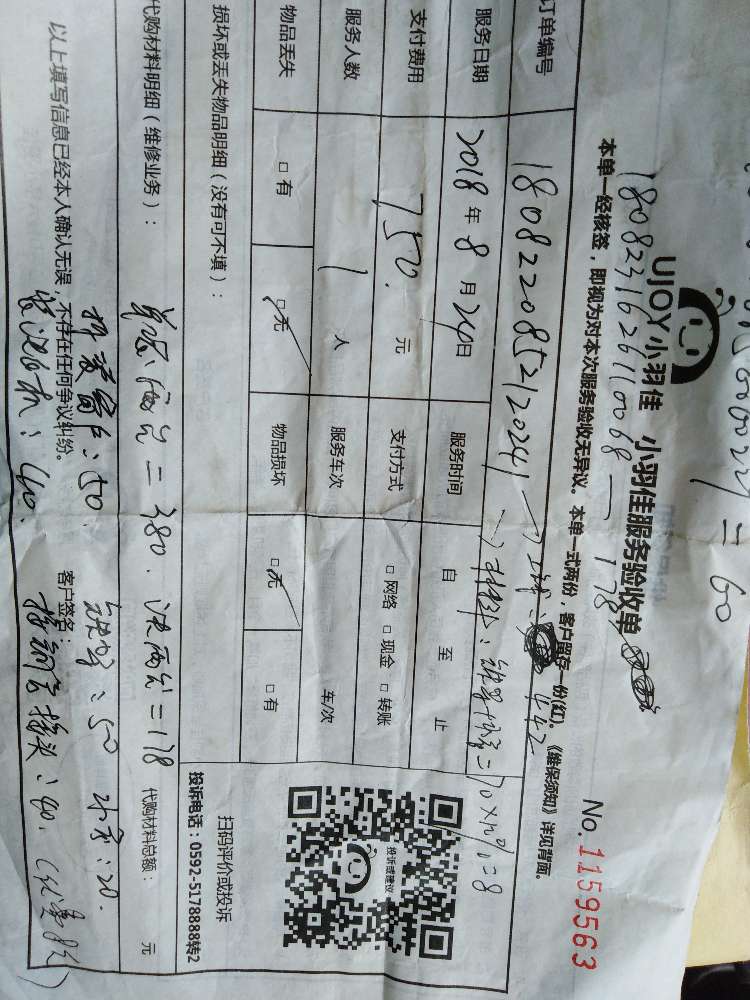 =60
UJOY小羽佳 小羽佳服务验收单
No.1159563
1808231626110068 — 178
本单一经核签，即视为对本次服务验收无异议。本单一式两份，客户留存一份(红)。《维保须知》详见背面。
订单编号 180822085212024
442
服务日期 2018年8月24日 服务时间 自 至 止
支付费用 750. 元 支付方式 □网络 □现金 □转账
服务人数 1 人 服务车次 车次
物品丢失 □有 □无 物品损坏 □无 □有
损坏或丢失物品明细（没有可不填）：
投诉或建议
扫码评价或投诉
投诉电话：0592-5178888转2
代购材料明细（维修业务）： 代购材料总额： 元
=380. 决两公=178
窗户:50. :50 :20.
以上填写信息已经本人确认无误，不存在任何争议纠纷。 客户签名：
:40. 接头:40.